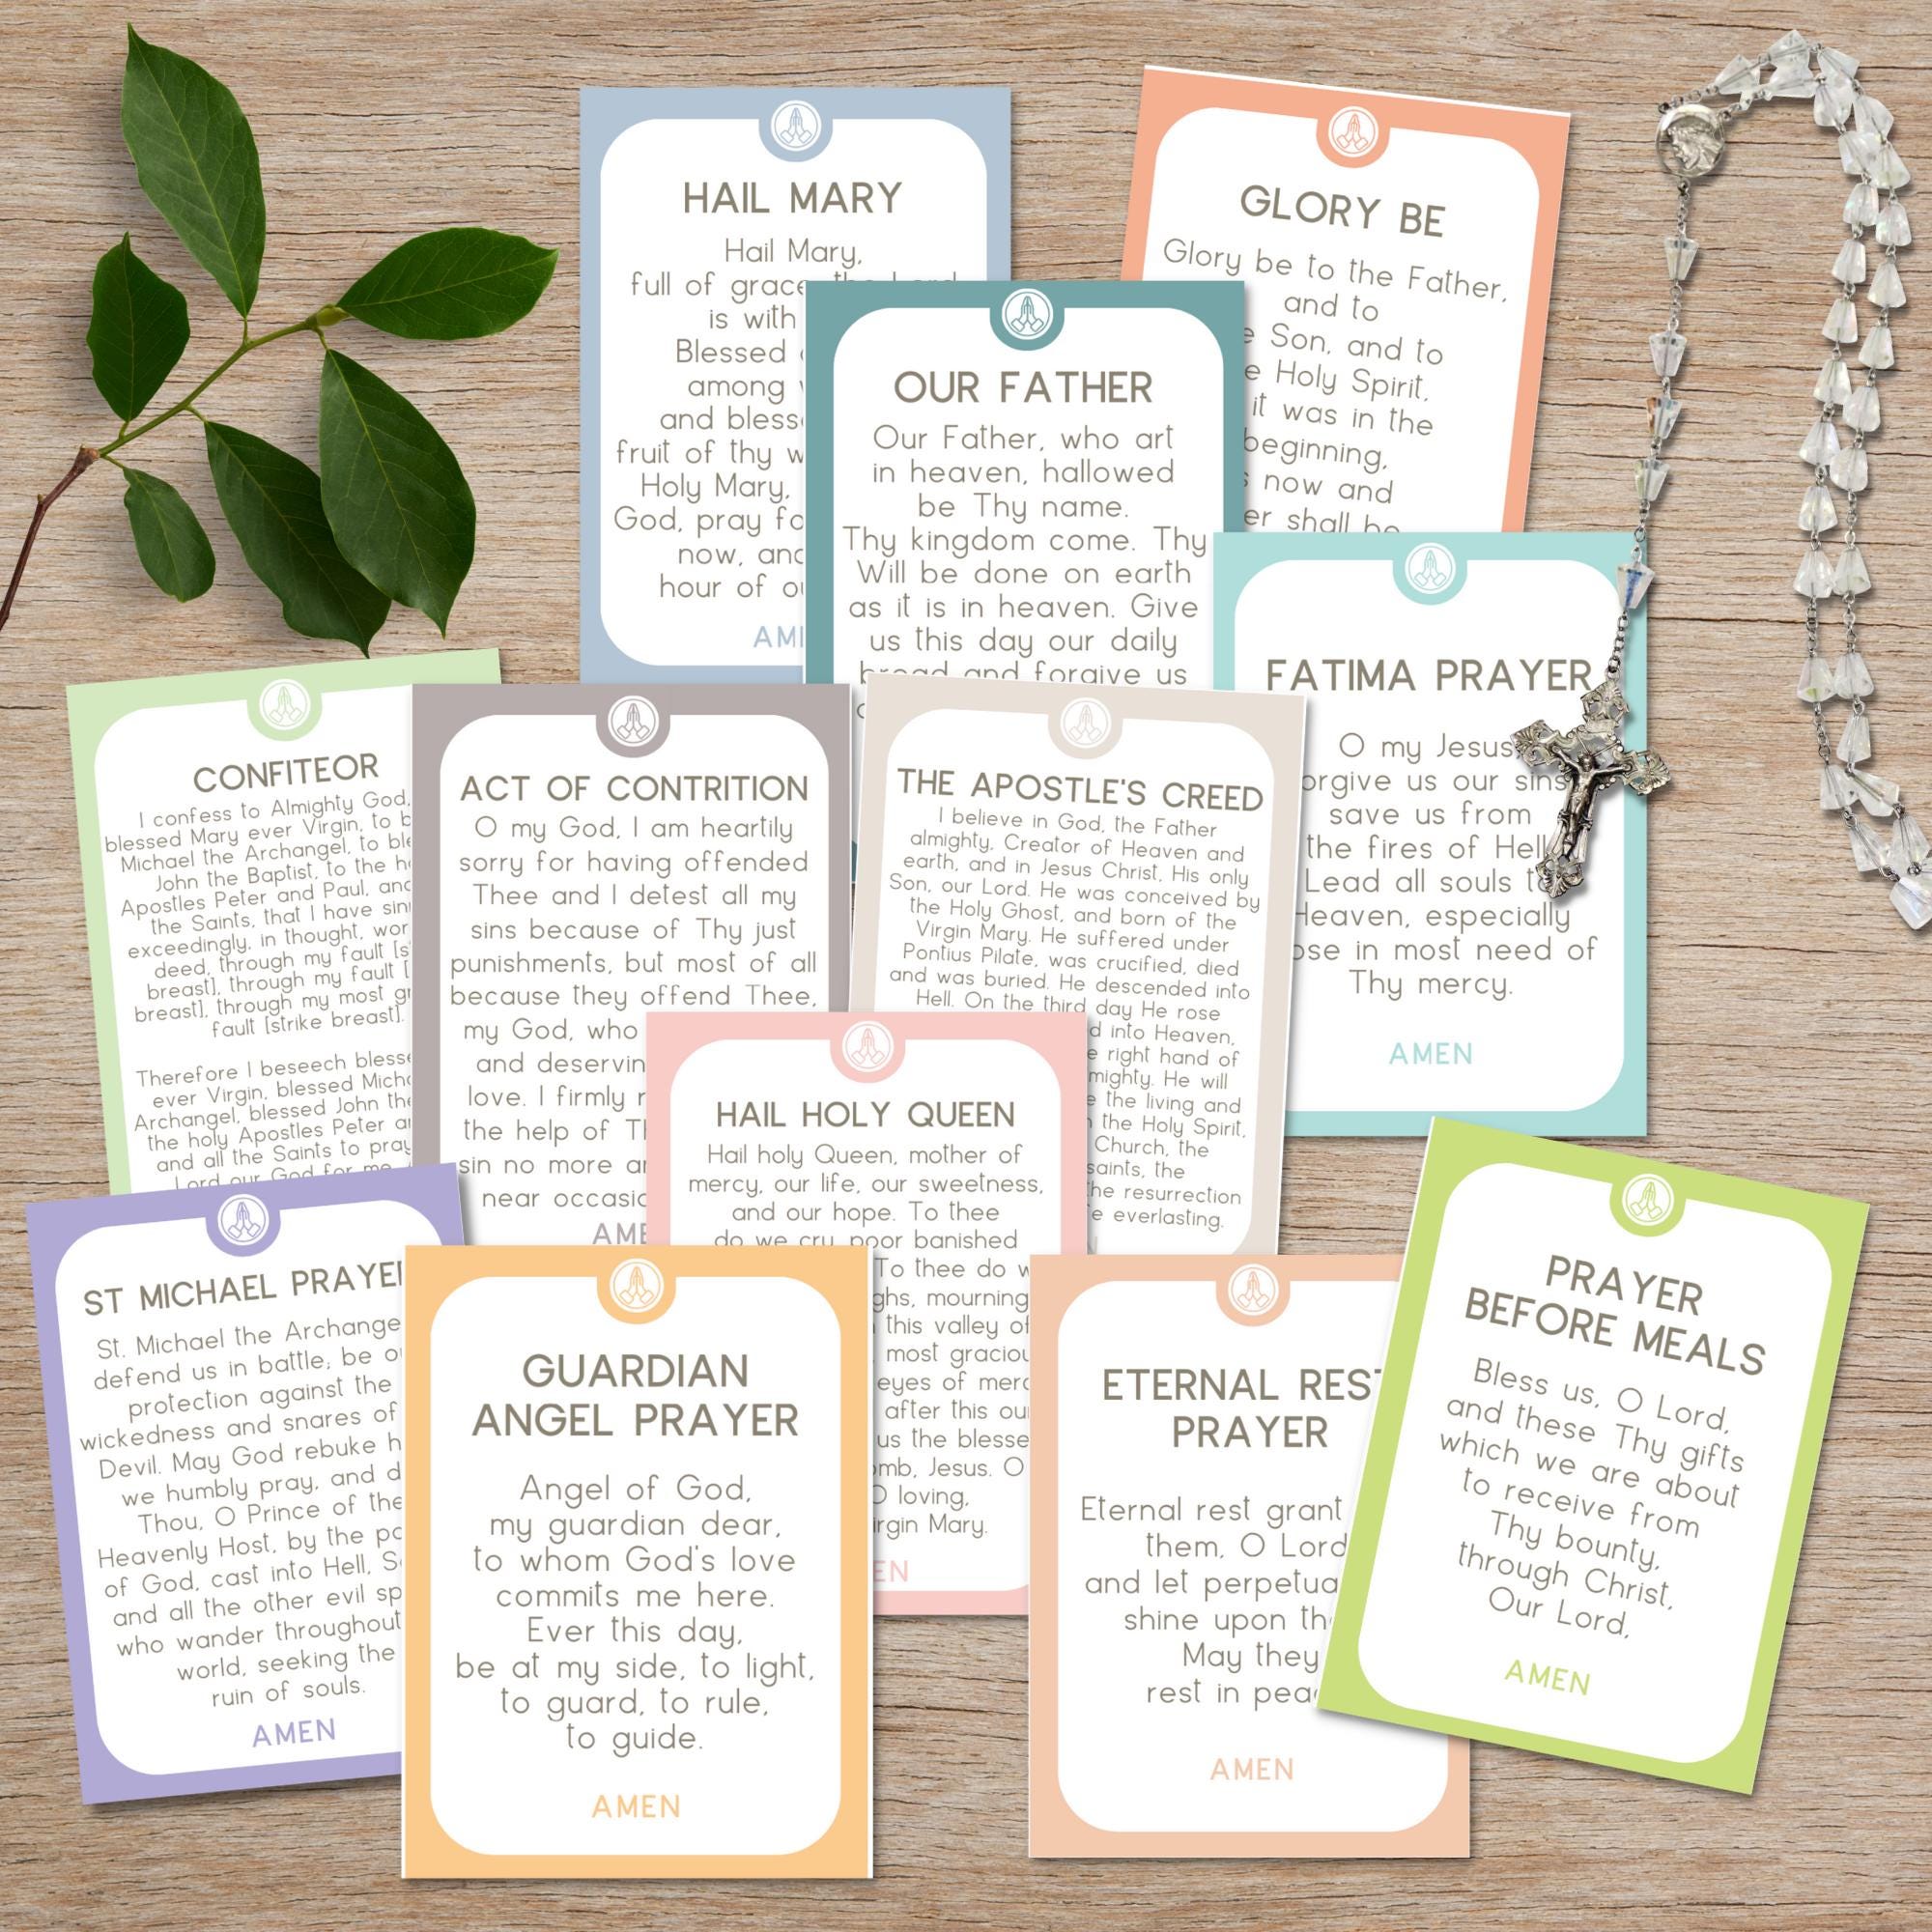 HAIL MARY
Hail Mary,
full of grace
is with
Blessed
among
and
fruit of thy
Holy Mary,
God, pray
now,
hour of
GLORY BE
Glory be to the Father,
and to
Son, and to
Holy Spirit,
it was in the
beginning,
now and
shall be
OUR FATHER
Our Father, who art
in heaven, hallowed
be Thy name.
Thy kingdom come. Thy
Will be done on earth
as it is in heaven. Give
us this day our daily
bread and forgive us
FATIMA PRAYER
O my Jesus
us our sins
save us from
the fires of Hell
Lead all souls
Heaven, especially
in most need of
Thy mercy.
AMEN
CONFITEOR
I confess to Almighty God,
blessed Mary ever Virgin, to
Michael the Archangel, to
John the Baptist, to the
Apostles Peter and Paul,
the Saints, that I have
exceedingly, in thought,
deed, through my fault
breast], through my fault
breast], through my most
fault [strike breast].
Therefore I beseech
ever Virgin, blessed
Archangel, blessed John
the holy Apostles Peter
and all the Saints to pray
Lord our God for me
ACT OF CONTRITION
O my God, I am heartily
sorry for having offended
Thee and I detest all my
sins because of Thy just
punishments, but most of all
because they offend Thee,
my God, who
and
love. I firmly
the help of
sin no more
near
THE APOSTLE'S CREED
I believe in God, the Father
almighty, Creator of Heaven and
earth, and in Jesus Christ, His only
Son, our Lord. He was conceived by
the Holy Ghost, and born of the
Virgin Mary. He suffered under
Pontius Pilate, was crucified, died
and was buried. He descended into
Hell. On the third day He rose
into Heaven,
right hand of
He will
the living and
the Holy Spirit,
Church, the
the
resurrection
everlasting.
HAIL HOLY QUEEN
Hail holy Queen, mother of
mercy, our life, our sweetness,
and our hope. To thee
do we cry poor banished
To thee do
mourning
this valley of
most
eyes of
after this
us the
Jesus. O
O loving,
Mary.
ST MICHAEL PRAYER
St. Michael the
defend us in battle; be
protection against the
wickedness and snares of
Devil. May God rebuke
we humbly pray, and
Thou, O Prince of the
Heavenly Host, by the
of God, cast into Hell,
and all the other evil
who wander throughout
world, seeking the
ruin of souls.
AMEN
GUARDIAN
ANGEL PRAYER
Angel of God,
my guardian dear,
to whom God's love
commits me here.
Ever this day,
be at my side, to light,
to guard, to rule,
to guide.
AMEN
ETERNAL REST
PRAYER
Eternal rest grant
them, O Lord
and let
shine upon
May they
rest in
AMEN
PRAYER
BEFORE MEALS
Bless us, O Lord,
and these Thy gifts
which we are about
to receive from
Thy bounty,
through Christ,
Our Lord,
AMEN